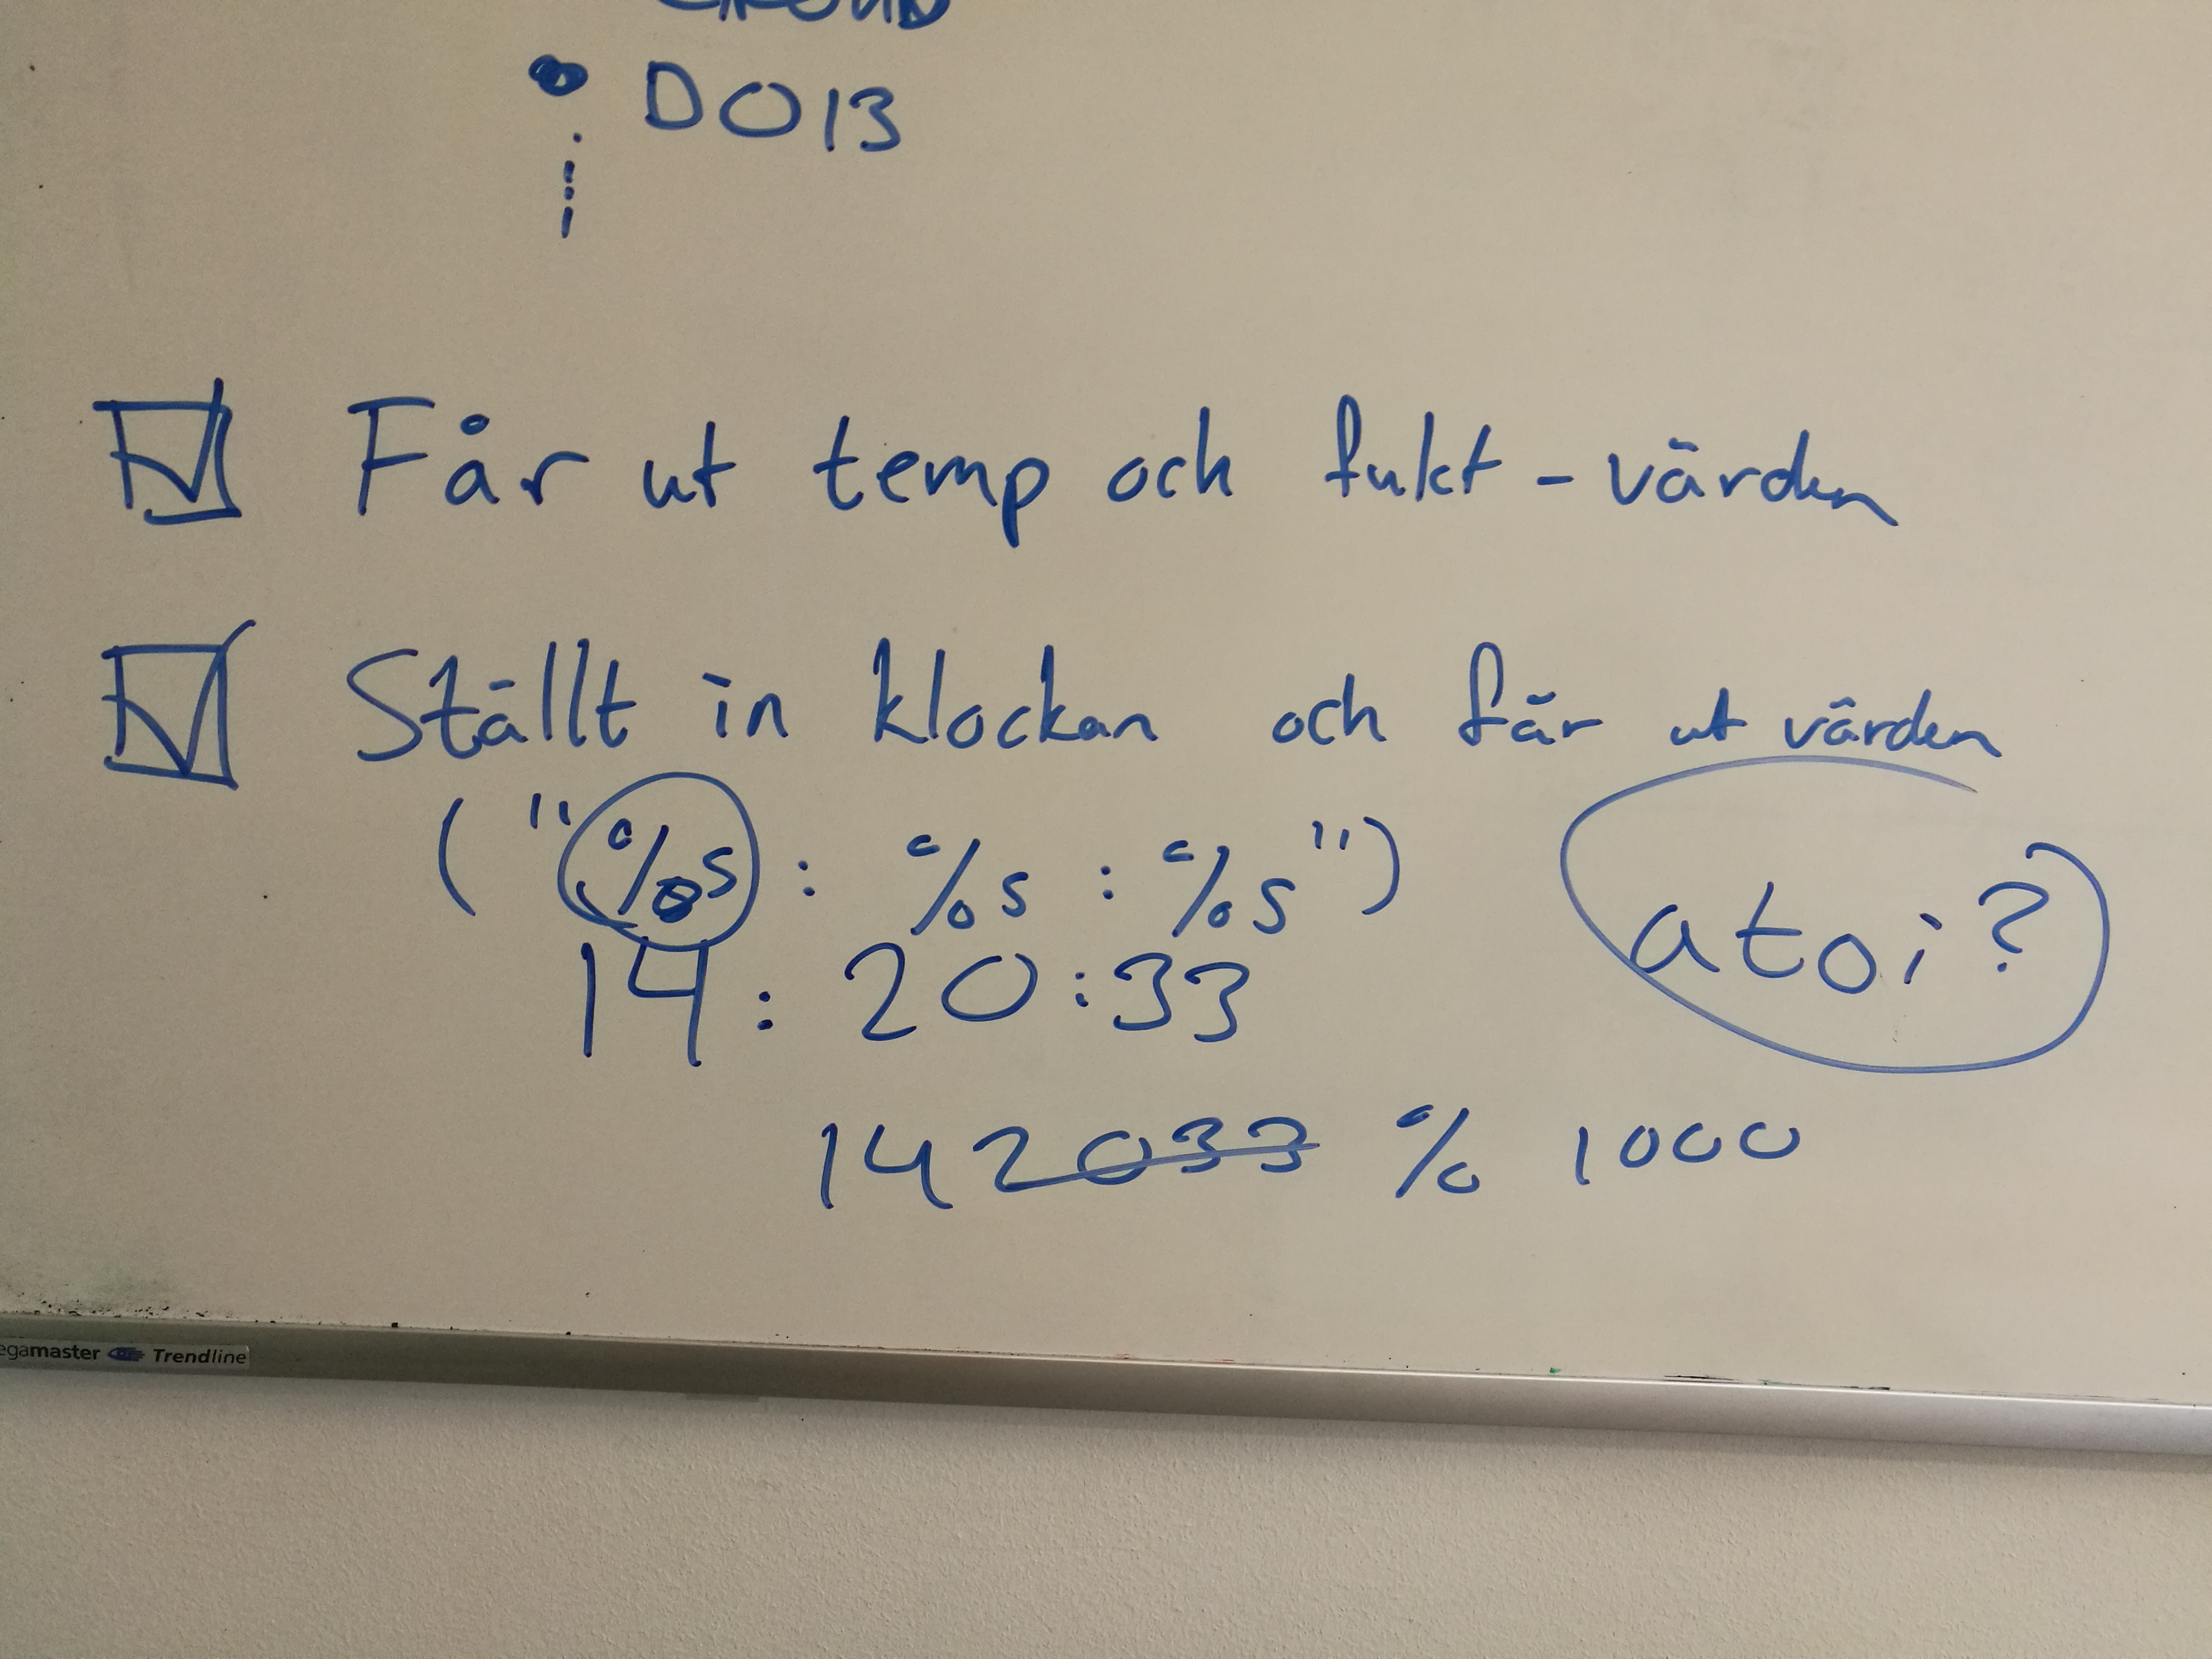 DO13
Får ut temp och fukt - värden
Ställt in klockan och får ut värden
("%s : %s : %s")
atoi?
14 : 20 : 33
142033 % 1000
egamaster Trendline